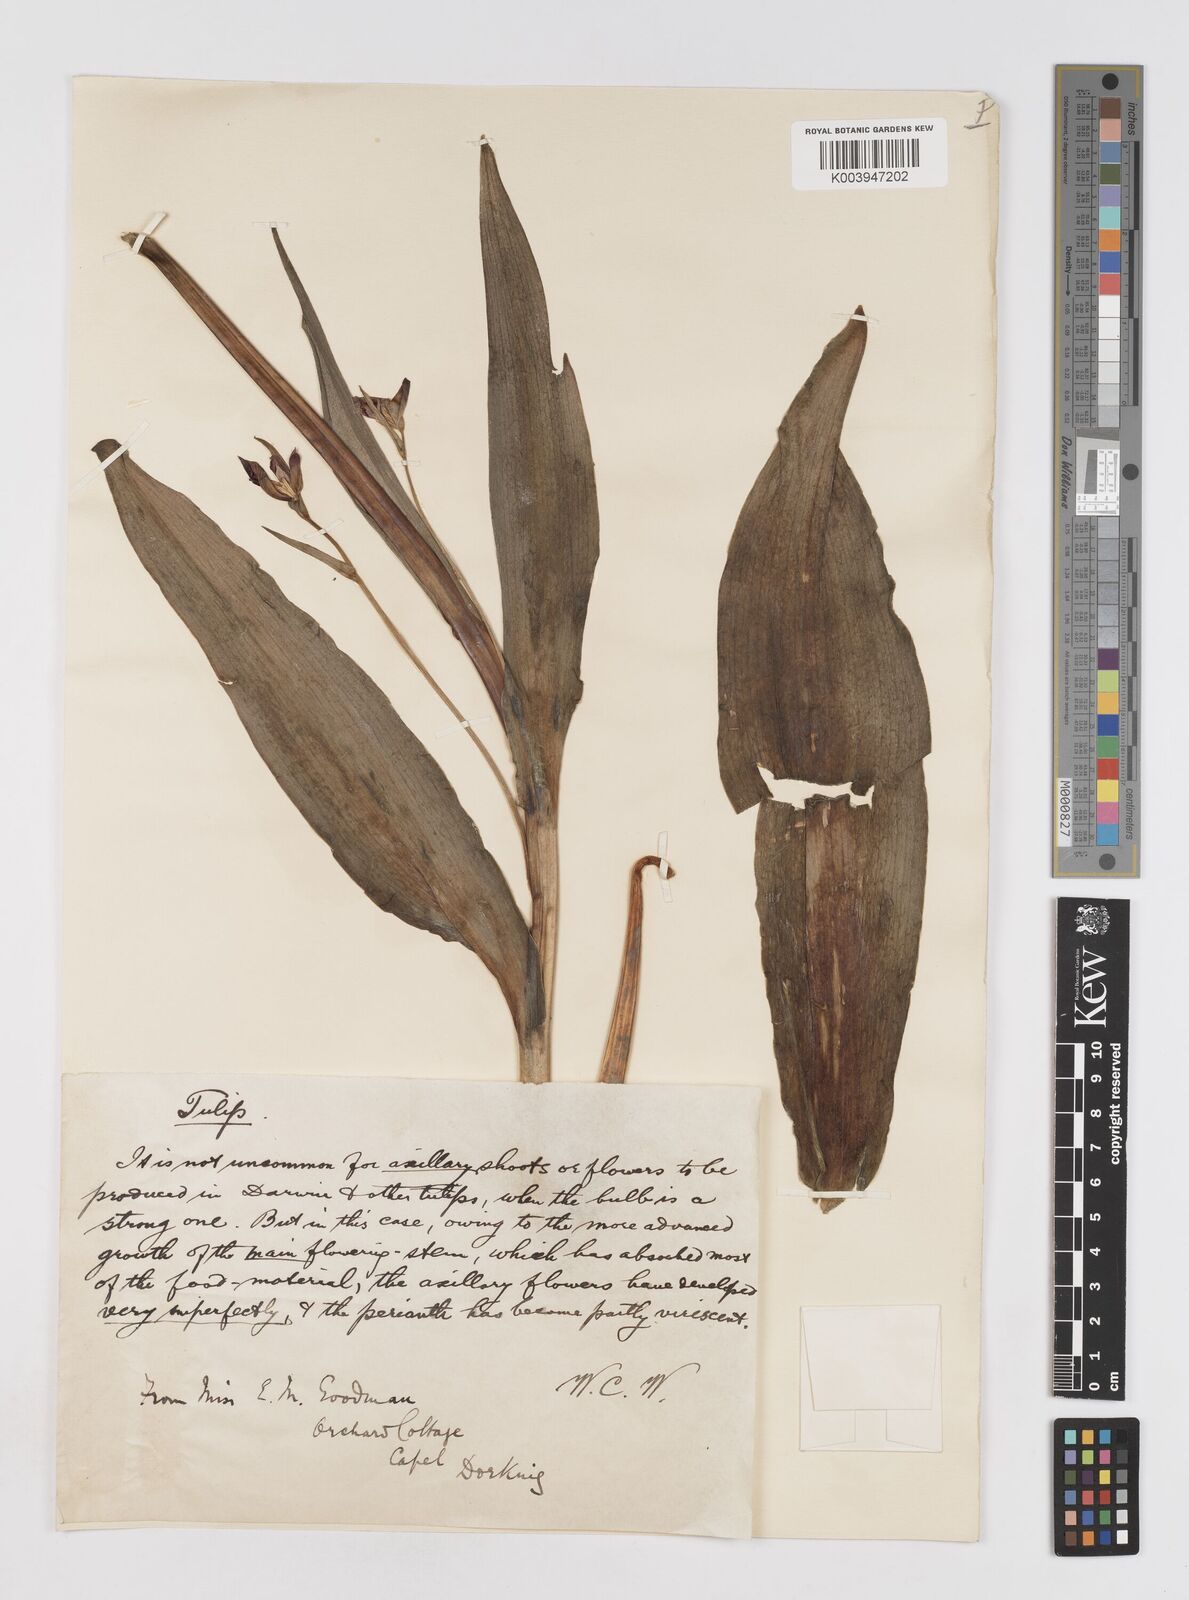 I
ROYAL BOTANIC GARDENS KEW
K003947202
Tulip.
It is not uncommon for axillary shoots or flowers to be
produced in Darwin & other tulips, when the bulb is a
strong one. But in this case, owing to the more advanced
growth of the main flowering-stem, which has absorbed most
of the food-material, the axillary flowers have developed
very imperfectly, & the perianth has become partly virescent.
W. C. W.
From Miss E. M. Goodman
Orchard Cottage
Capel
Dorking
inches
Density
Don Williams
centimeters
M000827
Royal Botanic Gardens
Kew
copyright reserved
0 1 2 3 4 5 6 7 8 9 10
cm